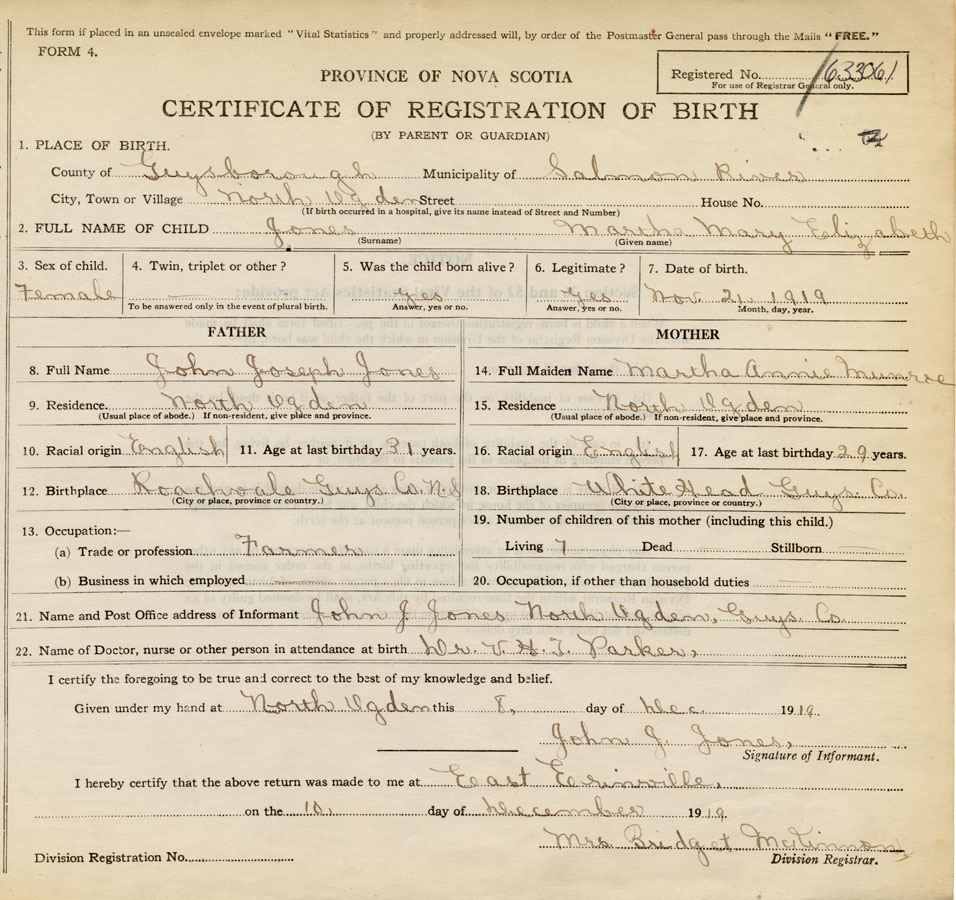 This form if placed in an unsealed envelope marked "Vital Statistics" and properly addressed will, by order of the Postmaster General pass through the Mails "FREE."
FORM 4.
Registered No. 63306/
For use of Registrar General only.
PROVINCE OF NOVA SCOTIA
CERTIFICATE OF REGISTRATION OF BIRTH
(BY PARENT OR GUARDIAN)
1. PLACE OF BIRTH.
County of Guysborough Municipality of Salmon River
City, Town or Village North Ogden Street House No.
(If birth occurred in a hospital, give its name instead of Street and Number)
2. FULL NAME OF CHILD Jones Martha Mary Elizabeth
(Surname) (Given name)
3. Sex of child. 4. Twin, triplet or other? 5. Was the child born alive? 6. Legitimate? 7. Date of birth.
Female Yes Yes Nov. 21, 1919
To be answered only in the event of plural birth. Answer, yes or no. Answer, yes or no. Month, day, year.
FATHER
8. Full Name John Joseph Jones
9. Residence. North Ogden
(Usual place of abode.) If non-resident, give place and province.
10. Racial origin English 11. Age at last birthday 31 years.
12. Birthplace Roachvale Guys. Co. N.S
(City or place, province or country.)
13. Occupation:—
(a) Trade or profession Farmer
(b) Business in which employed
MOTHER
14. Full Maiden Name Martha Annie Munroe
15. Residence North Ogden
(Usual place of abode.) If non-resident, give place and province.
16. Racial origin English 17. Age at last birthday 29 years.
18. Birthplace White Head Guys. Co.
(City or place, province or country.)
19. Number of children of this mother (including this child.)
Living 7 Dead Stillborn
20. Occupation, if other than household duties
21. Name and Post Office address of Informant John J. Jones North Ogden, Guys. Co.
22. Name of Doctor, nurse or other person in attendance at birth Dr. V. H. T. Parker,
I certify the foregoing to be true and correct to the best of my knowledge and belief.
Given under my hand at North Ogden this 8, day of Dec. 1919.
John J. Jones,
Signature of Informant.
I hereby certify that the above return was made to me at East Erinville,
on the 10, day of December 1919.
Mrs. Bridget McKinnon,
Division Registration No. Division Registrar.